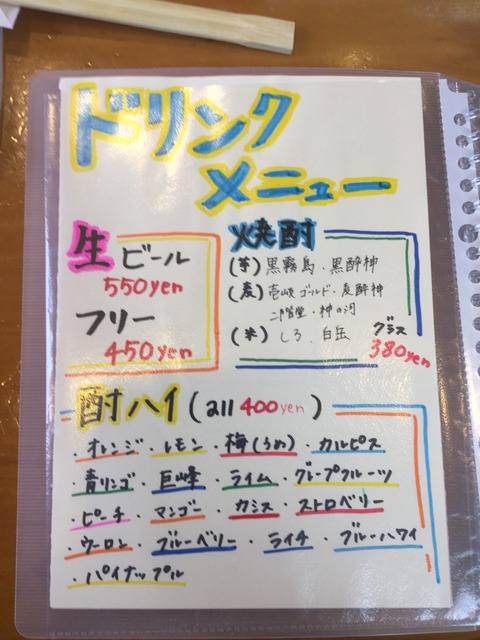 ドリンク
メニュー
生ビール
550yen
フリー
450yen
焼酎
(芋)黒霧島・黒酔神
(麦)壱岐ゴールド・麦酔神
二階堂・神の河
(米)しろ、白岳
グラス
380yen
酎ハイ(all 400yen)
・オレンジ・レモン・梅(うめ)・カルピス
・青リンゴ・巨峰・ライム・グレープクルーツ
・ピーチ・マンゴー・カシス・ストロベリー
・ウーロン・ブルーベリー・ライチ・ブルーハワイ
・パイナップル